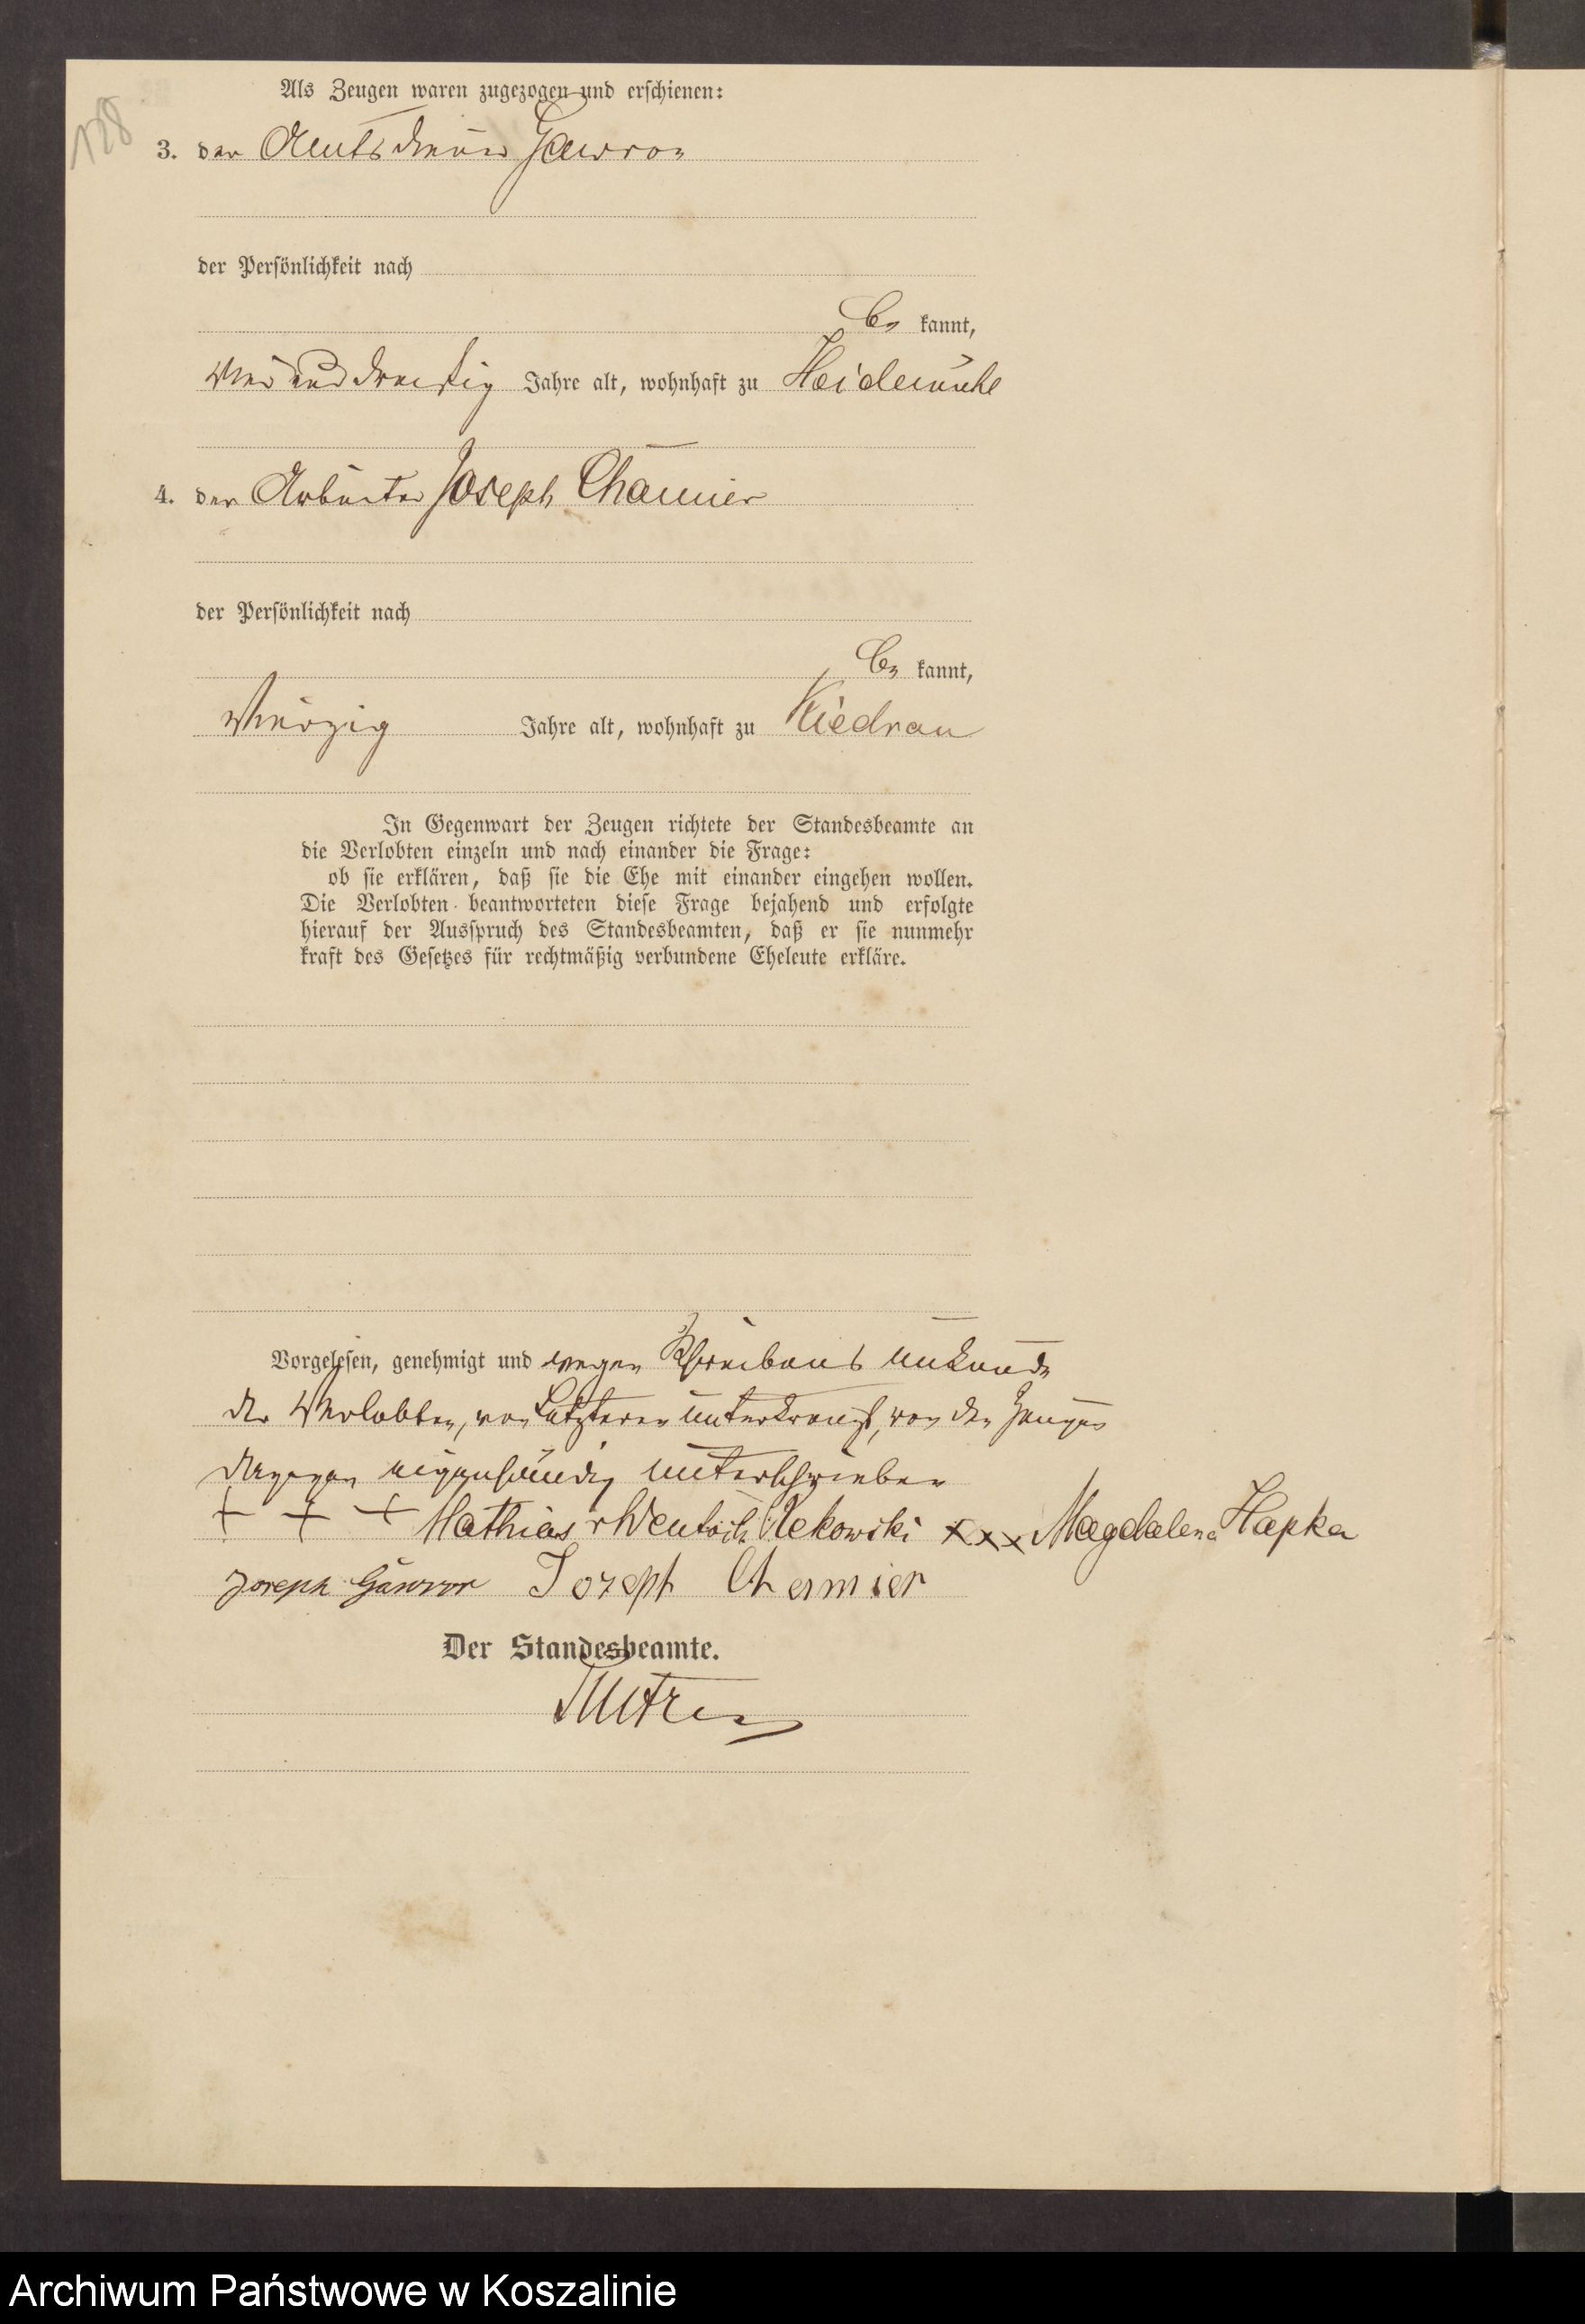 128
Als Zeugen waren zugezogen und erschienen:
3. der Amtsdiener Gawron
der Persönlichkeit nach
be kannt,
vier und dreißig Jahre alt, wohnhaft zu Heidemühl
4. der Arbeiter Joseph Chamier
der Persönlichkeit nach
be kannt,
vierzig Jahre alt, wohnhaft zu Kiedrau
In Gegenwart der Zeugen richtete der Standesbeamte an
die Verlobten einzeln und nach einander die Frage:
ob sie erklären, daß sie die Ehe mit einander eingehen wollen.
Die Verlobten beantworteten diese Frage bejahend und erfolgte
hierauf der Ausspruch des Standesbeamten, daß er sie nunmehr
kraft des Gesetzes für rechtmäßig verbundene Eheleute erkläre.
Vorgelesen, genehmigt und wegen Schreibens unkunde
der Verlobten, von Letzteren unterkreuzt, von den Zeugen
dagegen eigenhändig unterschrieben
+ + + Mathias Rekowski xxx Magdalena Hapka
Joseph Gawron Joseph Chamier
Der Standesbeamte.
Archiwum Państwowe w Koszalinie